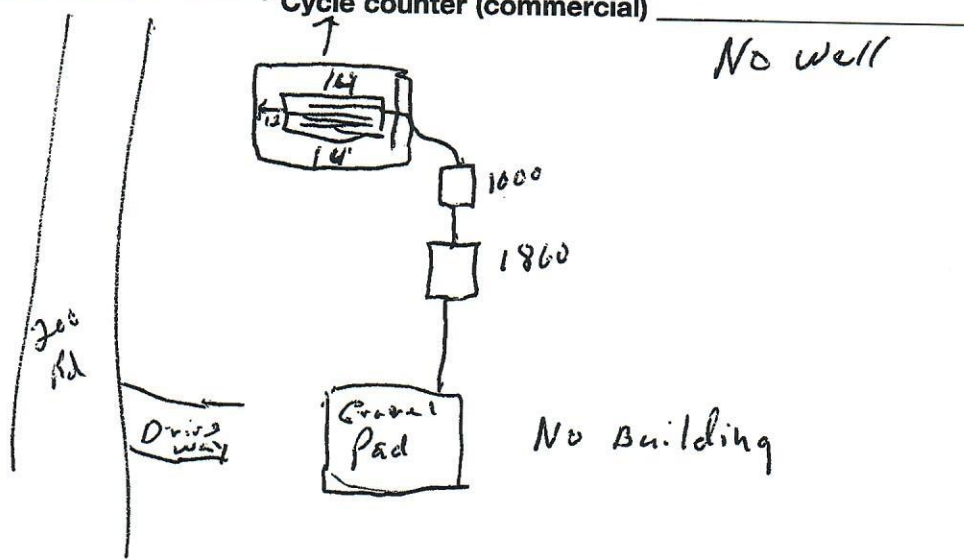 Cycle counter (commercial)
No well
14
12
14'
1000
1860
200
Rd
Drive
way
Gravel
Pad
No Building